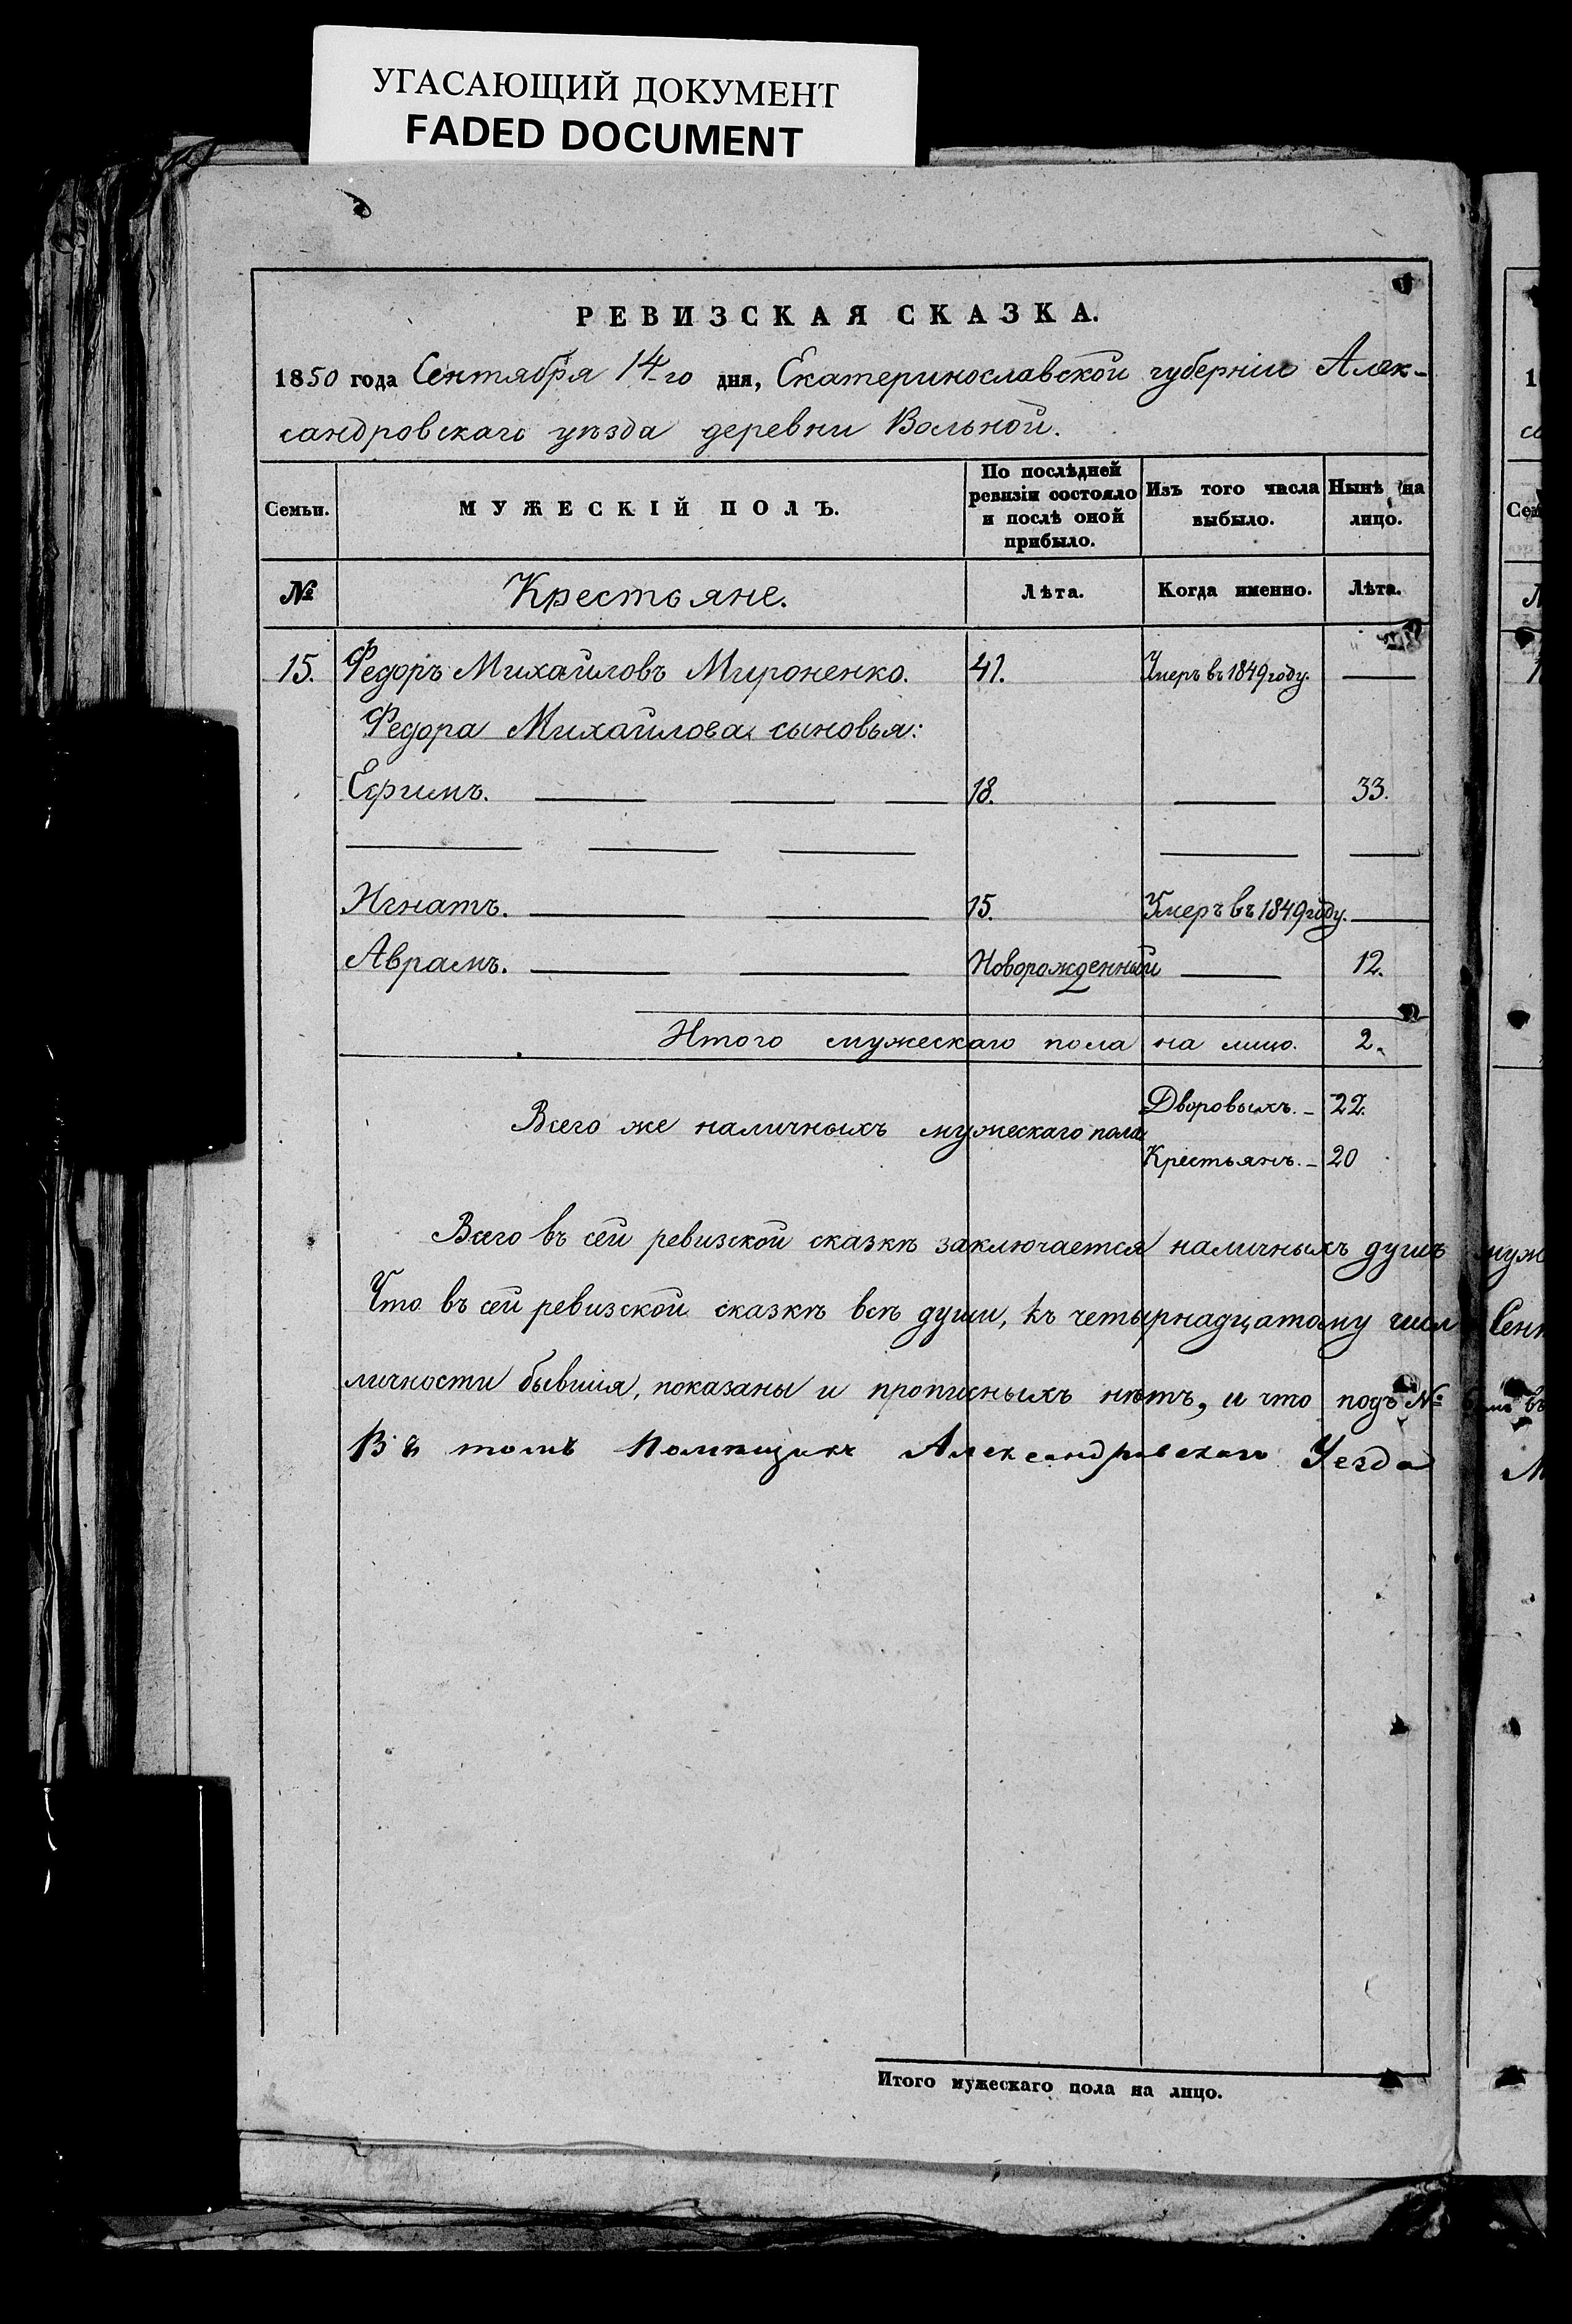 УГАСАЮЩИЙ ДОКУМЕНТ
FADED DOCUMENT
РЕВИЗСКАЯ СКАЗКА.
1850 года Сентября 14-го дня, Екатеринославской губерніи Алек-
сандровскаго уѣзда деревни Вольной.
Семьи. МУЖЕСКІЙ ПОЛЪ. По послѣдней ревизіи состояло и послѣ оной прибыло. Изъ того числа выбыло. Нынѣ на лицо.
№ Крестьяне. Лѣта. Когда именно. Лѣта.
15. Федоръ Михайловъ Мироненко. 41. Умеръ въ 1849 году. —
Федора Михайлова сыновья:
Ефимъ. — — — 18. — 33.
— — — — —
Игнатъ. — — 15. Умеръ въ 1849 году. —
Аврамъ. — — Новорожденный — 12.
Итого мужескаго пола на лицо. 2.
Дворовыхъ. – 22.
Всего же наличныхъ мужескаго пола
Крестьянъ. – 20
Всего въ сей ревизской сказкѣ заключается наличныхъ душъ муж
Что въ сей ревизской сказкѣ всѣ души, къ четырнадцатому числ Сен
личности бывшія, показаны и прописныхъ нѣтъ, и что подъ №
Въ томъ Помѣщикъ Александровскаго Уезда
Итого мужескаго пола на лицо.